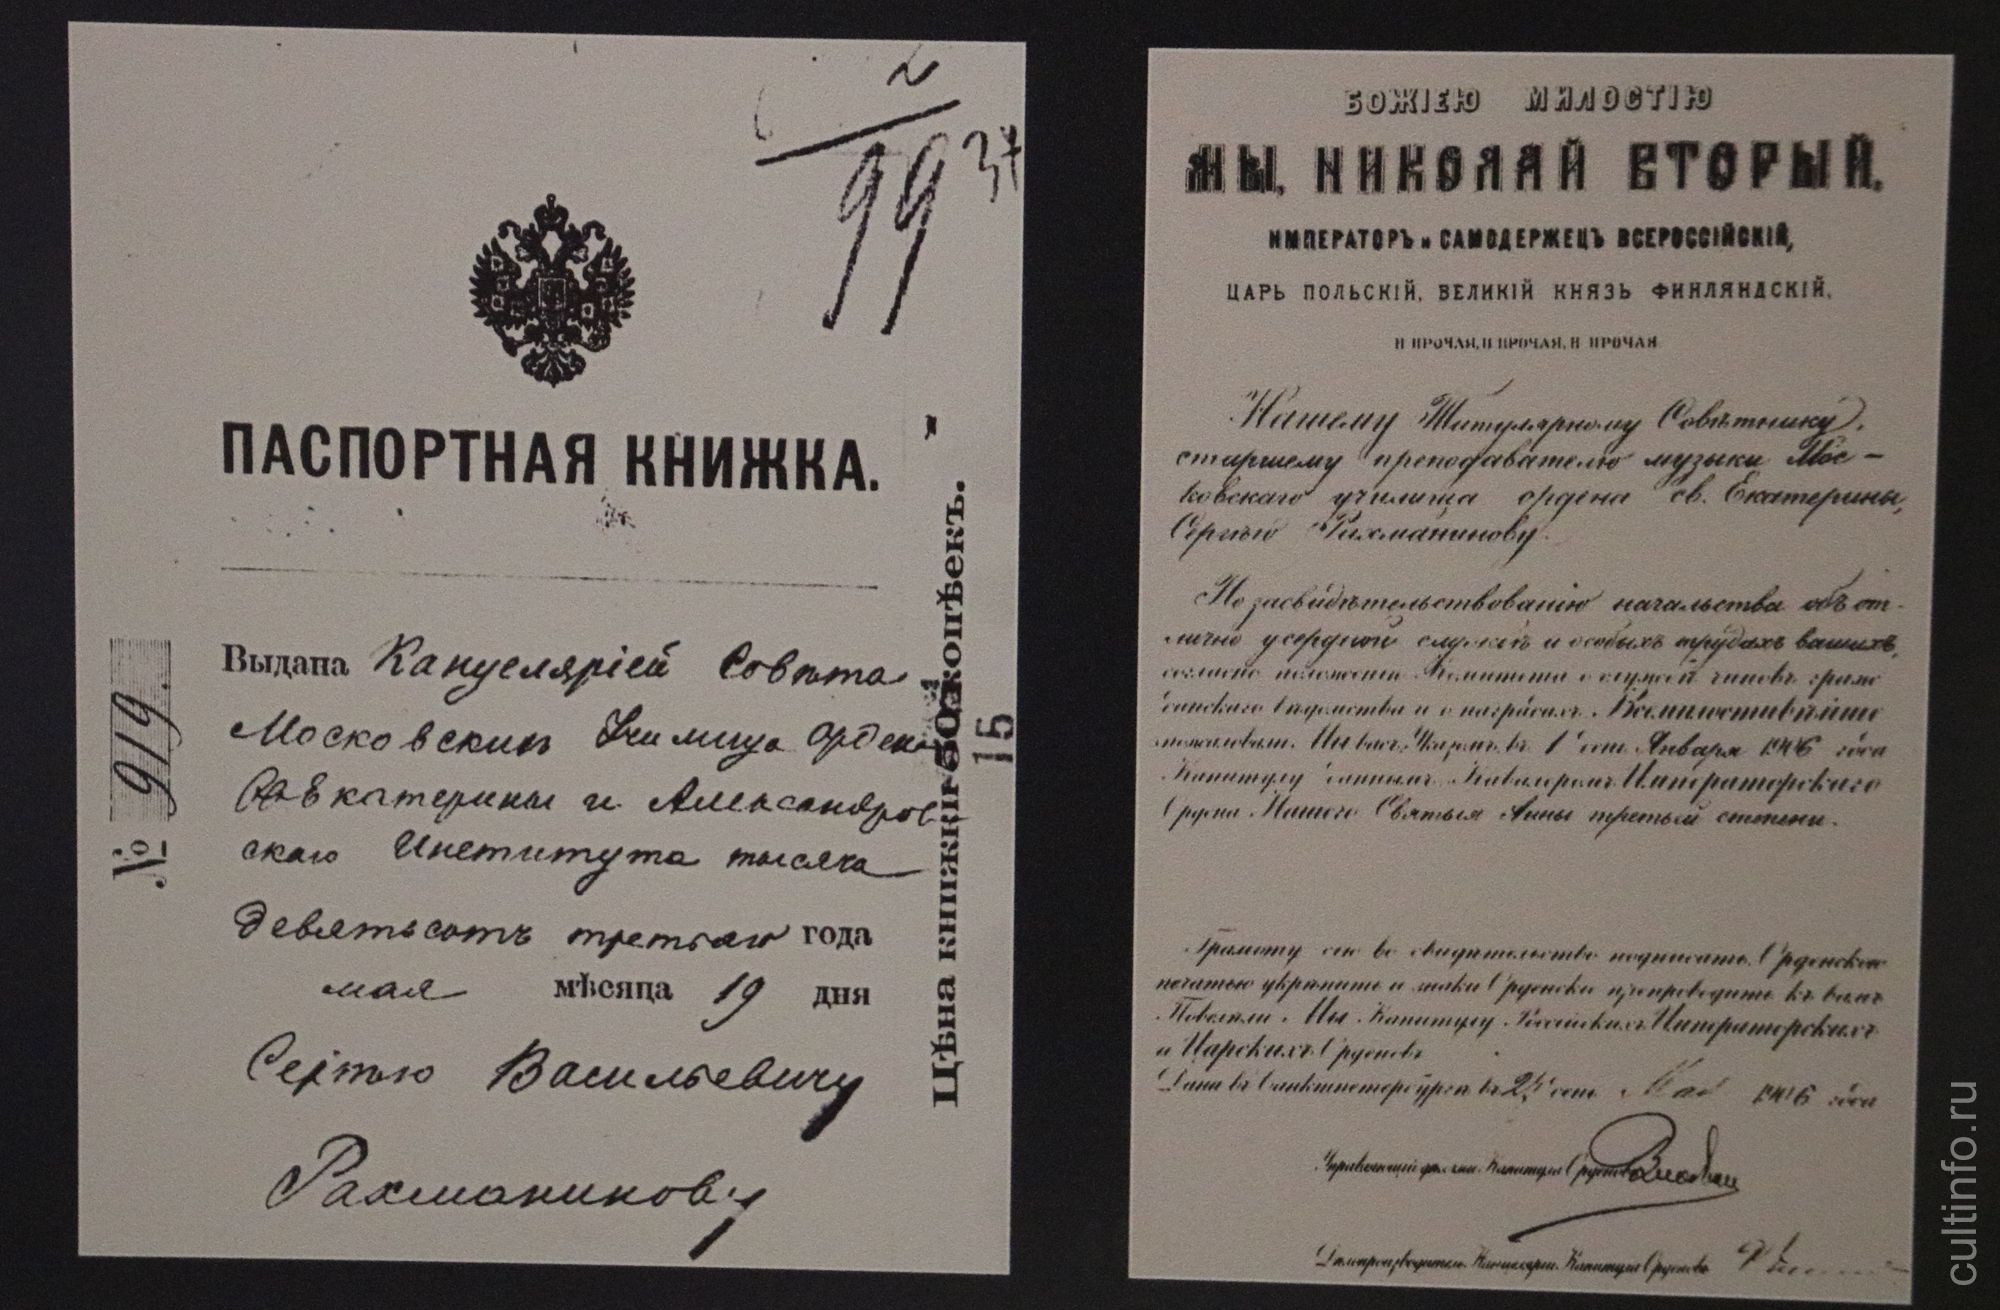 99 37
ПАСПОРТНАЯ КНИЖКА.
№ 919
Выдана Канцелярiей Совѣта
Московскихъ Училища ордена
Св Екатерины и Александров
скаго Института тысяча
девятьсотъ третьяго года
мая мѣсяца 19 дня
Сергѣю Васильевичу
Рахманинову
Цѣна книжкѣ копѣекъ.
15
БОЖІЕЮ МИЛОСТІЮ
МЫ, НИКОЛАЙ ВТОРЫЙ,
ИМПЕРАТОРЪ и САМОДЕРЖЕЦЪ ВСЕРОССІЙСКІЙ,
ЦАРЬ ПОЛЬСКІЙ, ВЕЛИКІЙ КНЯЗЬ ФИНЛЯНДСКІЙ,
И ПРОЧАЯ, И ПРОЧАЯ, И ПРОЧАЯ
Нашему Титулярному Совѣтнику,
старшему преподавателю музыки Мос-
ковскаго училища ордена св. Екатерины,
Сергѣю Рахманинову.
По засвидѣтельствованію начальства объ от-
лично усердной службѣ и особыхъ трудахъ вашихъ,
согласно положенію Комитета о службѣ чиновъ граж
данскаго вѣдомства и о наградахъ, Всемилостивѣйше
пожаловали Мы васъ, Указомъ въ 1 день Января 1906 года
Капитулу даннымъ, Кавалеромъ Императорскаго
Ордена Нашего Святыя Анны третьей степени.
Грамоту сію во свидѣтельство подписать, Орденскою
печатью укрѣпить и знаки Орденскіе препроводить къ вамъ
Повелѣли Мы Капитулу Россійскихъ Императорскихъ
и Царскихъ Орденовъ.
Дана въ Санктпетербургѣ въ день Мая 1906 года
Управляющій дѣлами Капитула Орденовъ
Дѣлопроизводитель Канцеляріи Капитула Орденовъ
cultinfo.ru